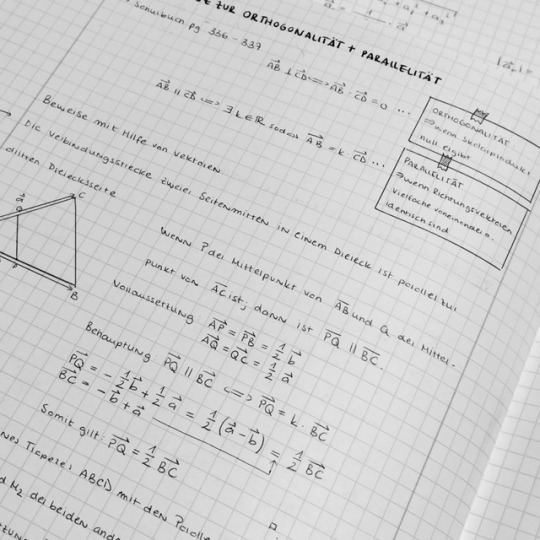 ZUR ORTHOGONALITÄT + PARALLELITÄT
Schulbuch pg 336 - 337
AB ⊥ CD <=> AB · CD = 0 ...
AB || CD <=> ∃ k ∈ ℝ sodass AB = k · CD ...
ORTHOGONALITÄT
⇒ wenn Skalarprodukt
null ergibt
PARALLELITÄT
⇒ wenn Richtungsvektoren
Vielfache voneinander o.
identisch sind
Beweise mit Hilfe von Vektoren
Die Verbindungsstrecke zweier Seitenmitten in einem Dreieck ist parallel zur
dritten Dreiecksseite
C
B
P
Wenn P der Mittelpunkt von AB und Q der Mittel-
punkt von AC ist, dann ist PQ || BC.
Vorraussetzung: AP = PB = 1/2 b
AQ = QC = 1/2 a
Behauptung: PQ || BC <=> PQ = k · BC
PQ = - 1/2 b + 1/2 a = 1/2 (a - b) = 1/2 BC
BC = - b + a
Somit gilt: PQ = 1/2 BC
Trapezes ABCD mit den
M2 der beiden